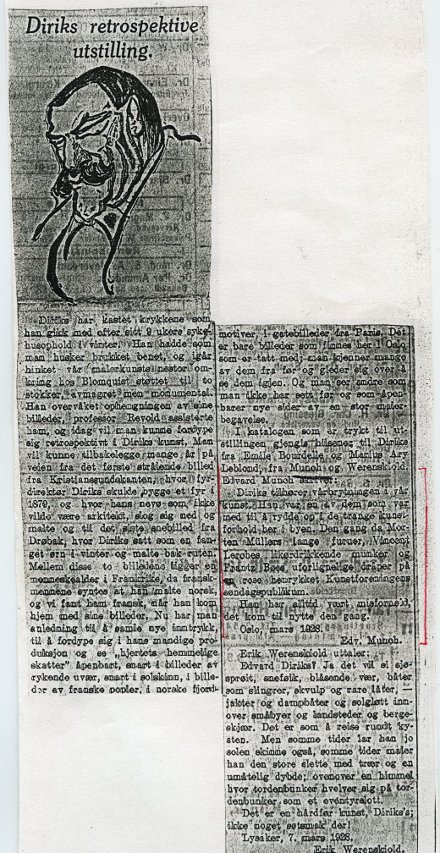 Diriks retrospektive
utstilling.
Diriks har kastet krykkene som
han gikk med efter sitt 9 ukers syke-
husophold i vinter. Han hadde som
man husker brukket benet, og igår
hinket vår malerkunsts nestor om-
kring hos Blomquist støttet til to
stokker, avmagret men monumental.
Han overvåket ophengningen av sine
billeder, professor Revold assisterte
ham, og idag vil man kunne fordype
sig retrospektivt i Diriks kunst. Man
vil kunne tilbakelegge mange år på
veien fra det første strålende billed
fra Kristianssundskanten, hvor fyr-
direktør Diriks skulde bygge et fyr i
1879, og hvor hans nevø som ikke
vilde være arkitekt, slog sig med og
malte og til det siste snebilled fra
Drøbak, hvor Diriks satt som en fan-
get ørn i vinter og malte bak ruten.
Mellem disse to billedene ligger en
menneskealder i Frankrike, da fransk-
mennene syntes at han malte norsk,
og vi fant ham fransk, når han kom
hjem med sine billeder. Nu har man
anledning til å samle nye inntrykk,
til å fordype sig i hans mandige pro-
duksjon og se „hjertets hemmelige
skatter" åpenbart, snart i billeder av
rykende uvær, snart i solskinn, i bille-
der av franske popler, i norske fjord-
motiver, i gatebilleder fra Paris. Det
er bare billeder som finnes her i Oslo
som er tatt med; man kjenner mange
av dem fra før og gleder sig over å
se dem igjen. Og man ser andre som
man ikke har sett før og som åpen-
barer nye sider av en stor maler-
begavelse.
I katalogen som er trykt til ut-
stillingen gjengis hilsener til Diriks
fra Emile Bourdelle og Marius Ary
Leblond, fra Munch og Werenskiold.
Edvard Munch skriver:
Diriks tilhører vårbrytningen i vår
kunst. Han var en av dem som var
med til å rydde op i de trange kunst-
forhold her i byen. Den gang da Mor-
ten Müllers lange furuer, Vincent
Lerches likørdrikkende munker og
Frantz Bøes uforlignelige dråper på
en rose henrykket Kunstforeningens
søndagspublikum.
Han har alltid vært misforstått,
det kom til nytte den gang.
Oslo, mars 1928.
Edv. Munch.
Erik Werenskiold uttaler:
Edvard Diriks? Ja det vil si sjø-
sprøit, snefokk, blåsende vær, båter
som slingrer, skvulp og rare låter, —
jakter og dampbåter og solgløtt inn-
over småbyer og landsteder og berge-
skjær. Det er som å reise rundt ky-
sten. Men somme tider lar han jo
solen skinne også, somme tider maler
han den store slette med trær og en
umåtelig dybde; ovenover en himmel
hvor tordenbunker hvelver sig på tor-
denbunker som et eventyrslott.
Det er en hårdfør kunst, Diriks's;
ikke noget søtsmak der!
Lysaker, 7. mars 1928.
Erik Werenskiold.